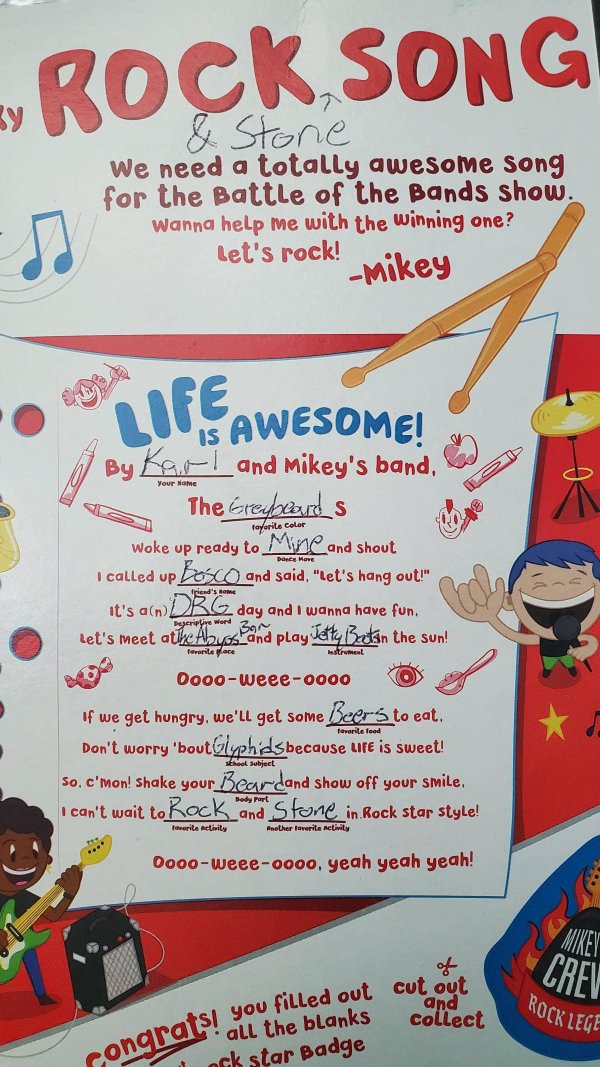 ky ROCK SONG
& Stone
We need a totally awesome song
for the Battle of the Bands show.
Wanna help me with the winning one?
Let's rock!
-Mikey
LIFE
IS AWESOME!
By Karl and Mikey's band,
Your Name
The Greybeard s
favorite Color
Woke up ready to Mine and shout
Dance Move
I called up Bosco and said, "Let's hang out!"
friend's Name
It's a(n) DRG day and I wanna have fun,
Descriptive Word
Let's meet at The Abyss Bar and play Jetty Boots in the sun!
favorite place
Instrument
Oooo-weee-oooo
If we get hungry, we'll get some Beers to eat,
favorite food
Don't worry 'bout Glyphids because LIFE is sweet!
School Subject
So, c'mon! Shake your Beard and show off your smile,
Body Part
I can't wait to Rock and Stone in Rock star style!
favorite Activity
Another favorite Activity
Oooo-weee-oooo, yeah yeah yeah!
congrats! you filled out
all the blanks
ck star Badge
cut out
and
collect
MIKEY
CREW
ROCK LEGE